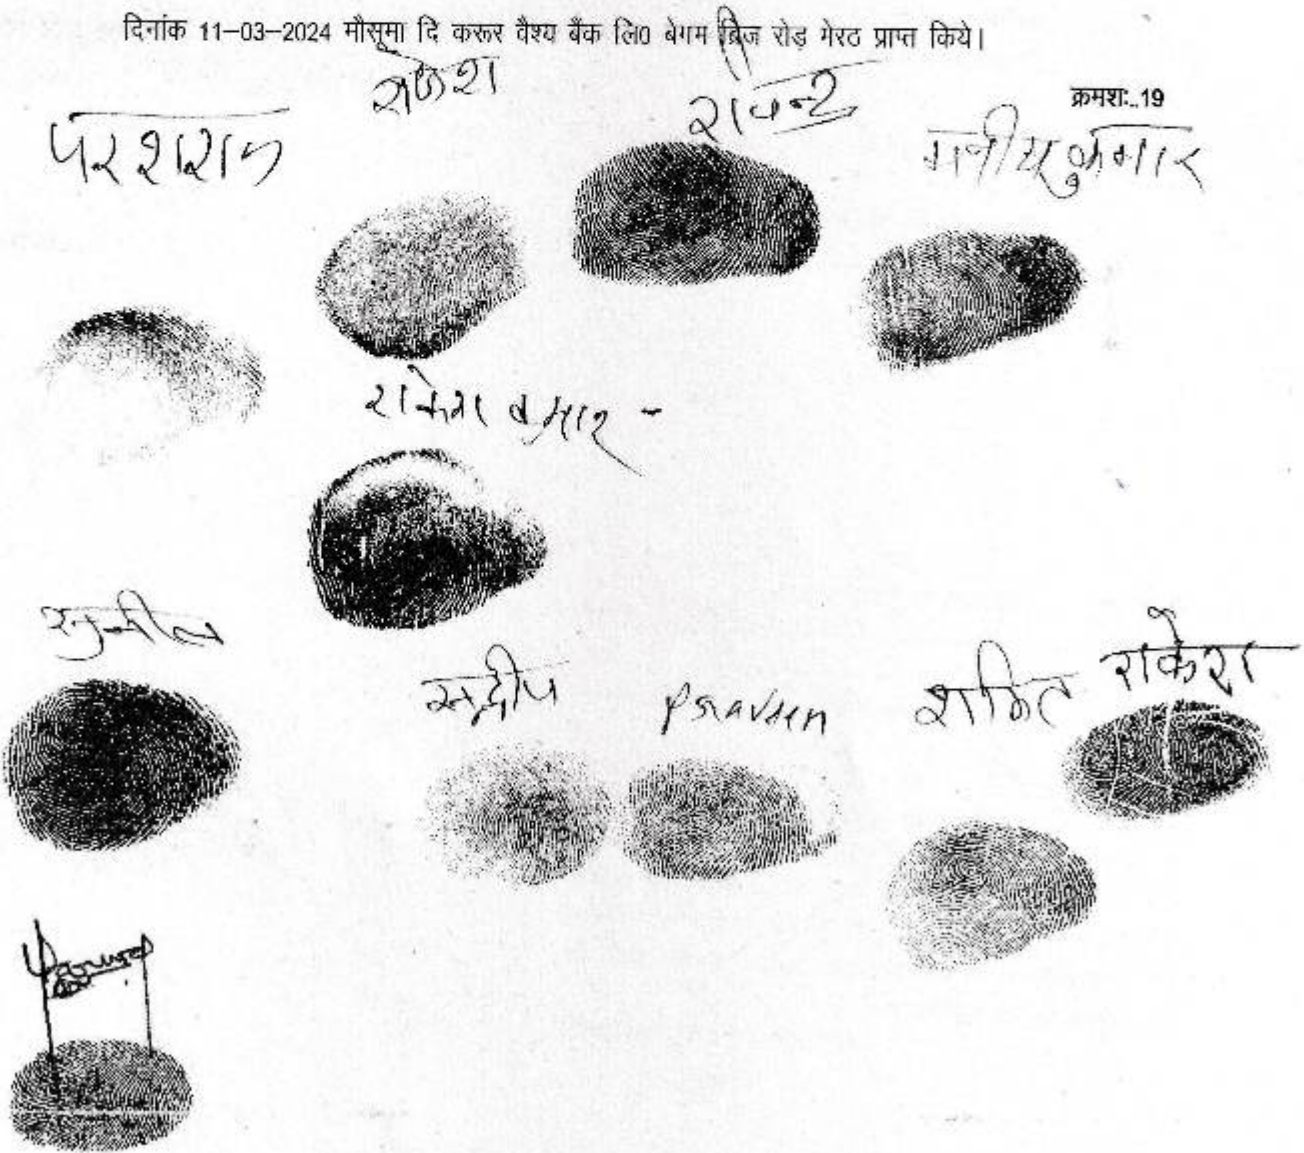 दिनांक 11–03–2024 मौसूमा दि करूर वैश्य बैंक लि0 बेगम ब्रिज रोड़ मेरठ प्राप्त किये।
क्रमशः..19
राकेश
रविन्द्र
परशराम
मनीष कुमार
राकेश कुमार
सुनील
संदीप Praveen
राकेश